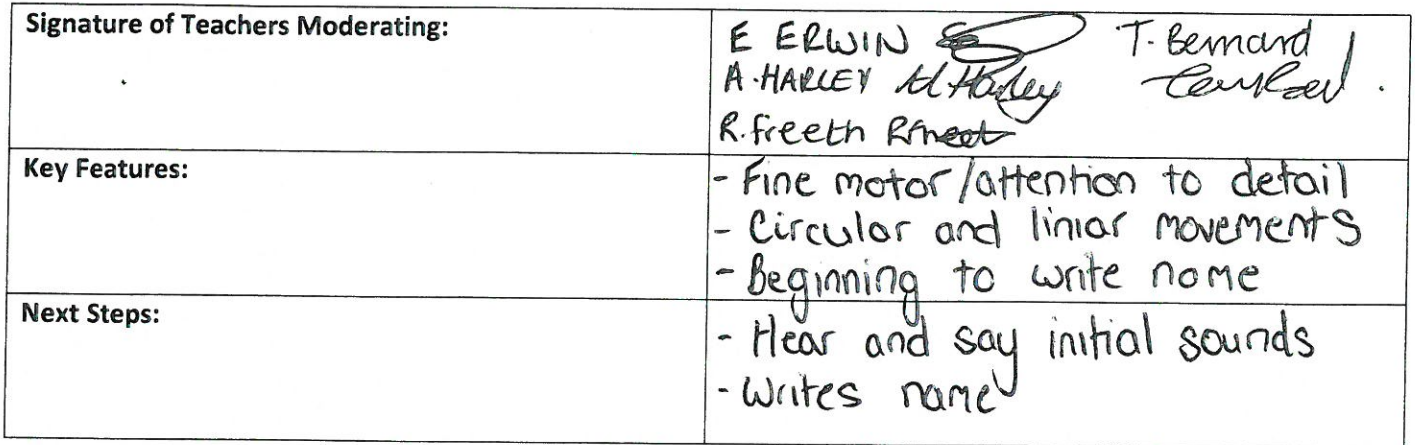 Signature of Teachers Moderating:
E ERWIN T. Bernard
A. HARLEY A Harley
R. freeth R freeth
Key Features:
- Fine motor/attention to detail
- Circular and liniar movements
- Beginning to write name
Next Steps:
- Hear and say initial sounds
- Writes name